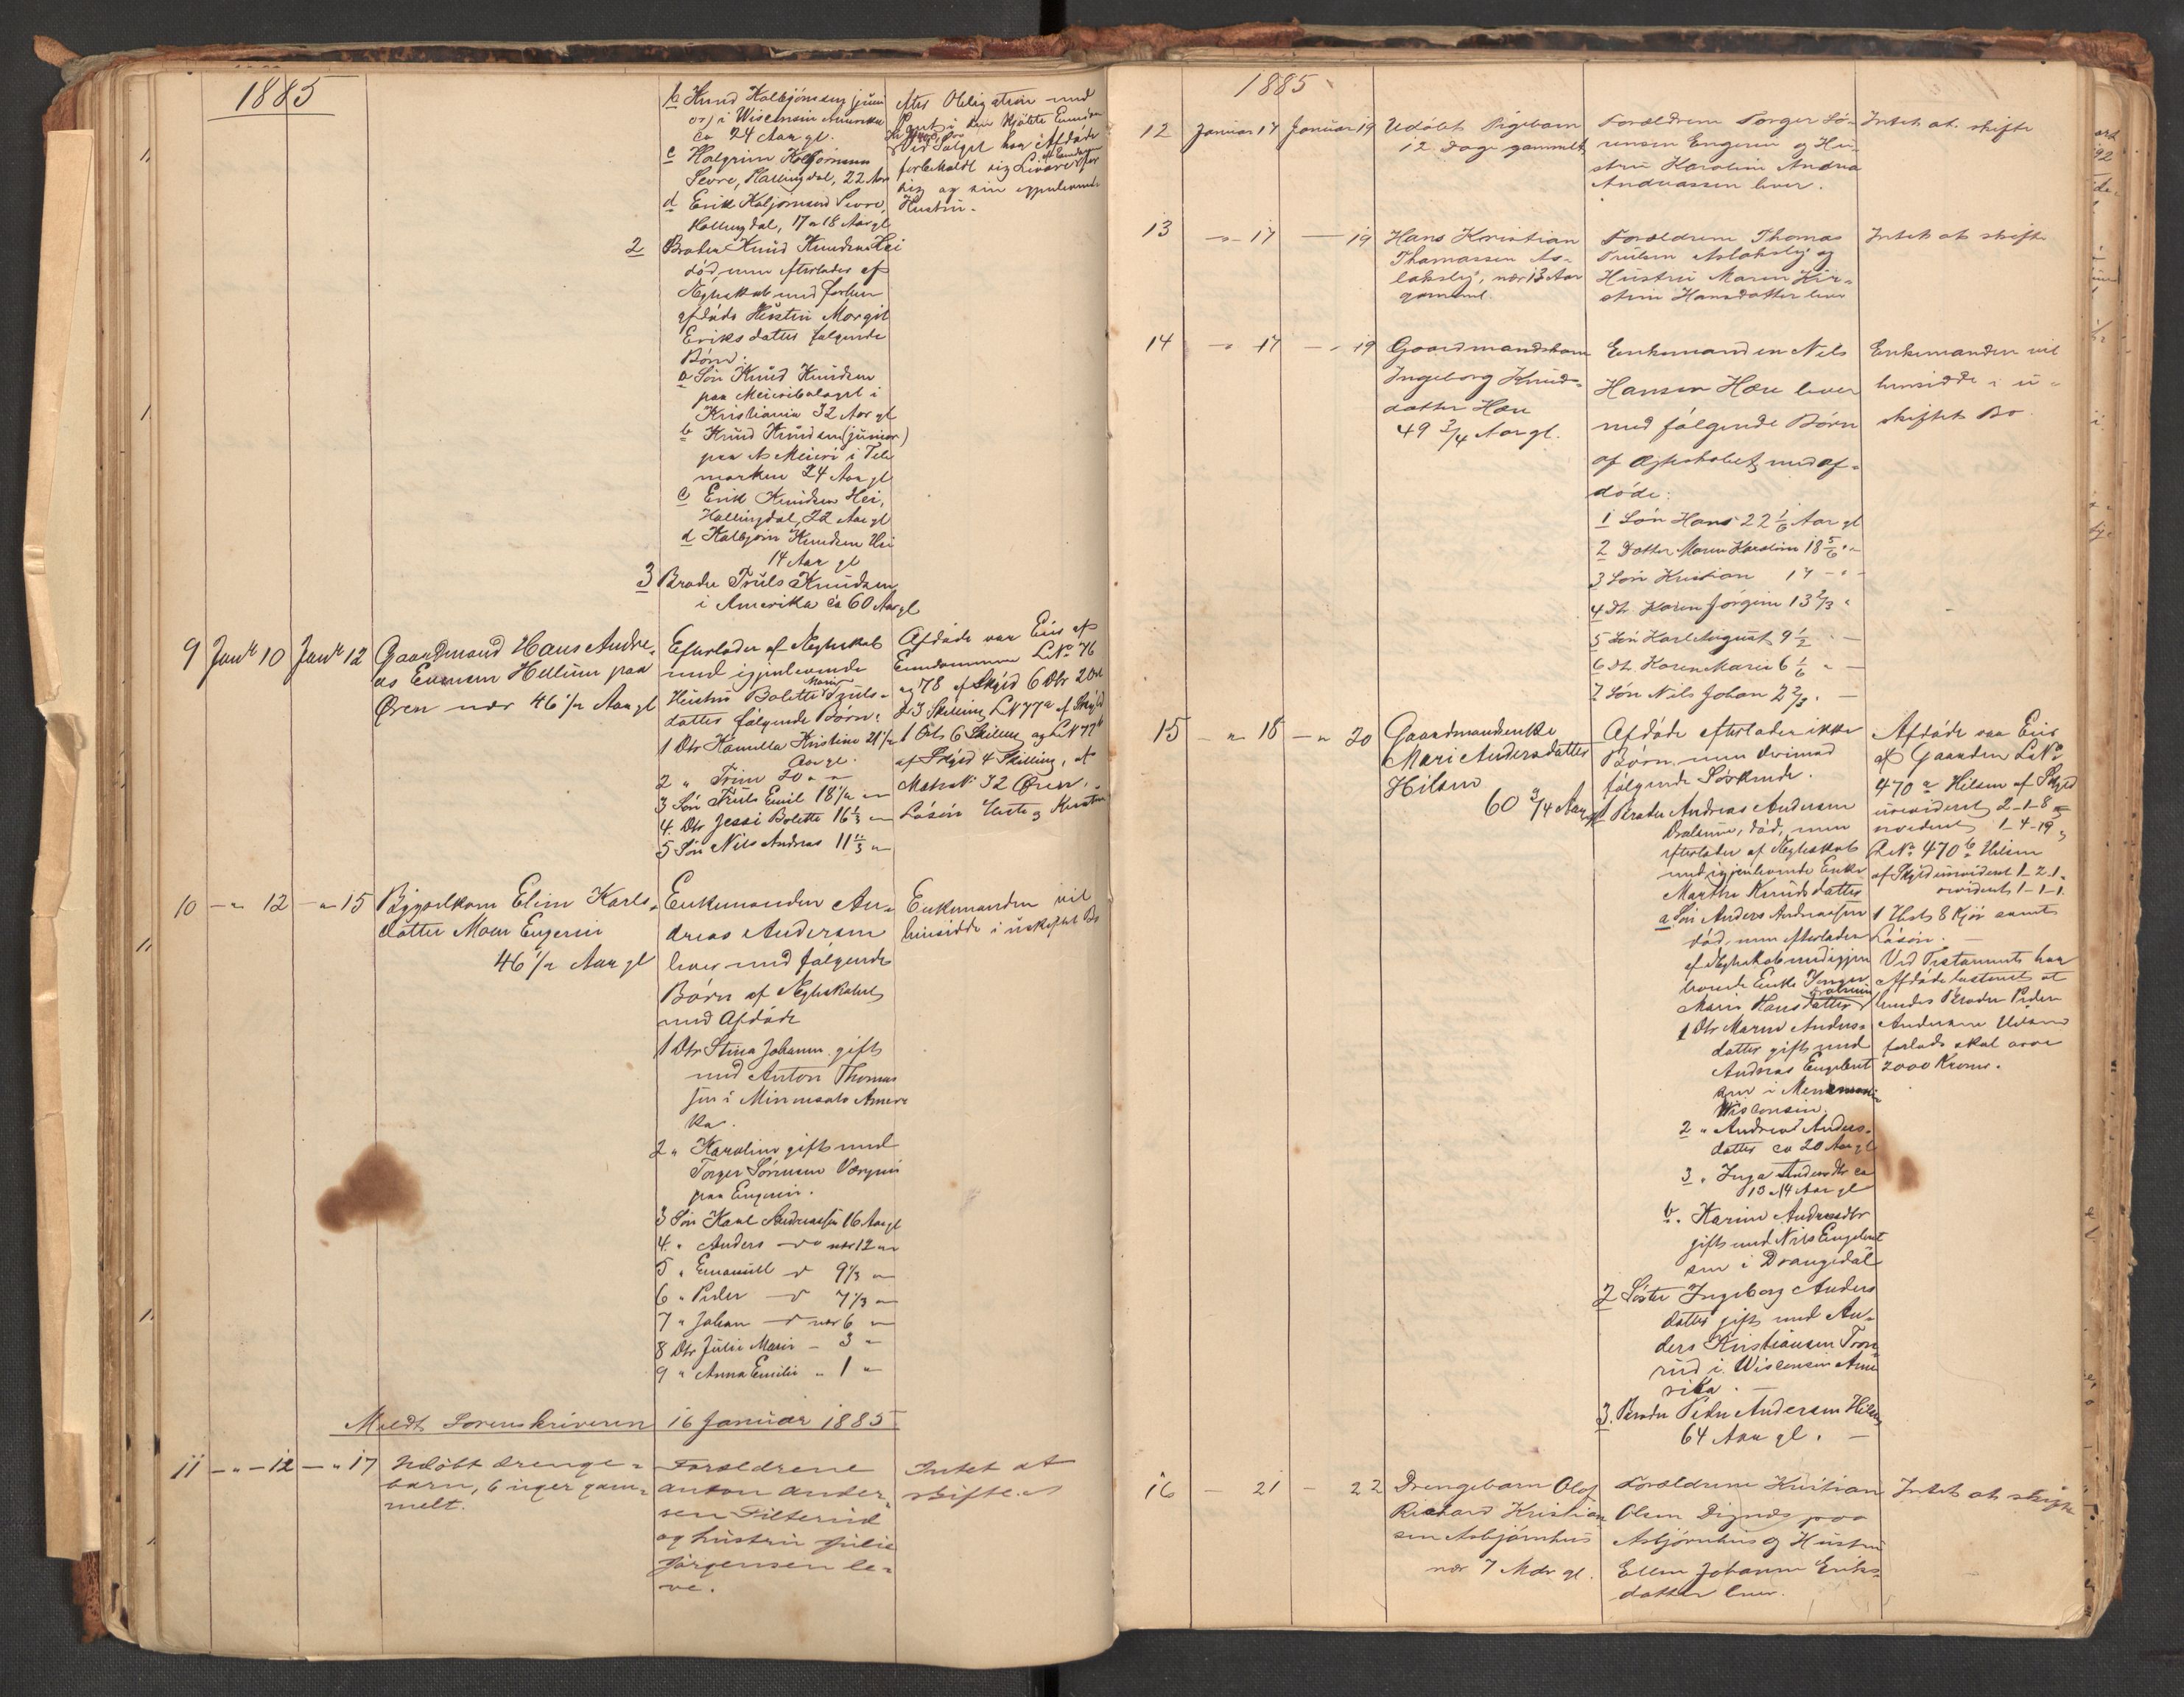 1885
b Knud Kolbjørnsen (juni
or) i Wisconsin Amerika
ca 24 Aar gl.
c Halgrim Kolbjørnsen
Sevre, Hallingdal, 22 Aar
d Erik Kolbjørnsen Sevre,
Hallingdal, 17 a 18 Aar gl
efter Obligation med
Pant i den solgte Eiendom
Ved Salget har Afdøde
forbeholdt sig Livøret af Eiendommen for
sig og sin gjenlevende
Hustru.
2 Broder Knud Knudsen Hei
død, men efterlader af
Ægteskab med forhen
afdøde Hustru Margit
Eriksdatter følgende
Børn:
a Søn Knud Knudsen
paa Meieribolaget i
Kristiania 32 Aar gl
b Knud Knudsen (junior)
paa Meieri i Tele
marken 24 Aar gl
c Erik Knudsen Hei,
Hallingdal, 22 Aar gl
d Kolbjørn Knudsen Hei
14 Aar gl
3 Broder Truls Knudsen
i Amerika ca 60 Aar gl
9 Janr 10 Janr 12 Gaardmand Hans Andre-
as Evensen Hellum paa
Øren nær 46 1/2 Aar gl
Efterlader af Ægteskab
med igjenlevende
Hustru Bolette Marie Truls-
datter følgende Børn:
1 Dtr Kamilla Kristine 21 1/2
Aar gl.
2 " Trine 20 " "
3 Søn Truls Emil 18 1/2 "
4. Dtr Jessi Bolette 16 1/3 "
5 Søn Nils Andreas 11 2/3 "
Afdøde var Eier af
Eiendommene LNo 76
og 78 af Skyld 6 Dlr 2 Ort
23 Skilling LN 77a af Skyld
1 Ort 6 Skilling og LN 77b
af Skyld 4 Skilling, af
Matr No 32 Øren.
Løsøre Heste og
10 - " 12 - " 15 Bygselkone Eline Karls-
datter Moen Engerin
46 1/2 Aar gl
Enkemanden An-
dreas Andersen
lever med følgende
Børn af Ægteskabet
med Afdøde
1 Dtr Stina Johanne gift
med Anton Thomas
sen i Minnesota Ameri
ka.
2 " Karoline gift med
Torger Sørensen
paa Engerin.
3 Søn Karl Andreassen 16 Aar gl
4. " Anders - " nær 12 "
5 " Emanuel " 9 1/3 "
6 " Peder - " 7 1/3 "
7 " Johan - " nær 6 "
8 Dtr Julie Marie - 3 "
9 " Anna Emilie " 1 "
Enkemanden vil
hensidde i uskiftet Bo
Meldt Sorenskriveren 16 Januar 1885
11 - " - 12 - " 17 Udøbt drenge-
barn, 6 uger gam-
melt.
Forældrene
Anton Ander-
sen Filterud
og hustru Julie
Jørgensen le-
ve.
Intet at
skifte.
1885
12 Januar 17 Januar 19 Udøbt Pigebarn
12 Dage gammelt
Forældrene Torger Sø-
rensen Engerin og Hu-
stru Karoline Andrea
Andreassen lever.
Intet at skifte
13 - " - 17 - 19 Hans Kristian
Thomassen As-
lakslij, nær 13 Aar
gammel.
Forældrene Thomas
Trulsen Aslakslij og
Hustru Maren Kir-
stine Hansdatter lever
Intet at skifte
14 - " 17 - " 19 Gaardmandskone
Ingeborg Knuds-
datter Hære
49 3/4 Aar gl.
Enkemanden Nils
Hansen Hære lever
med følgende Børn
af Ægteskabet med af-
døde:
1 Søn Hans 22 1/6 Aar gl
2 Datter Maren Karoline 18 5/6 " "
3 Søn Kristian 17 - " -
4 Dtr. Karen Jørgine 13 2/3 "
5 Søn Karl August 9 1/2 " -
6 Dtr. Karen Marie 6 1/6 " -
7 Søn Nils Johan 2 2/3. -
Enkemanden vil
hensidde i u-
skiftet Bo
15 - " 18 - " 20 Gaardmandsenke
Mari Andersdatter
Hilsen
60 3/4 Aar gl
Afdøde efterlader ikke
Børn, men derimod
følgende Søskende.
1 Broder Andreas Andersen
død, men
efterlader af Ægteskab
med igjenlevende Enke
Marthe Knudsdatter
a. Søn Anders Andreassen
død, men efterlader
af Ægteskab med igjen
levende Enke
Marie Hansdatter
1 Dtr Maren Anders-
datter gift med
Andreas Engebret
sen i Menomonie
Wisconsin.
2 " Andrea Anders-
datter ca 20 Aar gl
3 " Inga Andersdtr ca
13 a 14 Aar gl
b. Karine Andreasdtr
gift med Nils Engebret
sen i Drangedal
2 Søster Ingeborg Anders
datter gift med An-
ders Kristiansen Tron
rud i Wisconsin Ame
rika. -
3. Broder Peder Andersen Hilsen
64 Aar gl. -
Afdøde var Eier
af Gaarden LNo
470a Hilsen af Skyld
urevideret 2-1-8
revideret 1-4-19
LNo 470b Hilsen
af Skyld urevideret 1-2-1
revideret 1-1-1
1 Hest 8 Kjør samt
Løsøre. -
Ved Testamente har
Afdøde bestemt at
hendes Broder Peder
Andersen Hilsen
forlods skal arve
2000 Kroner.
16 - 21 - 22 Drengebarn Olof
Richard Kristian
sen Asbjørnhus
nær 7 Mdr gl.
Forældrene Kristian
Olsen Dignæs paa
Asbjørnhus og Hustru
Ellen Johanne Eriks-
datter lever.
Intet at skifte